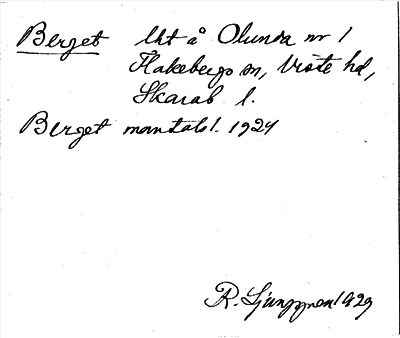 Berget lht å Olunda nr 1
Flakebergs sn, Viste hd,
Skarab l.
Berget mantalsl. 1924
R. Ljunggren 1929